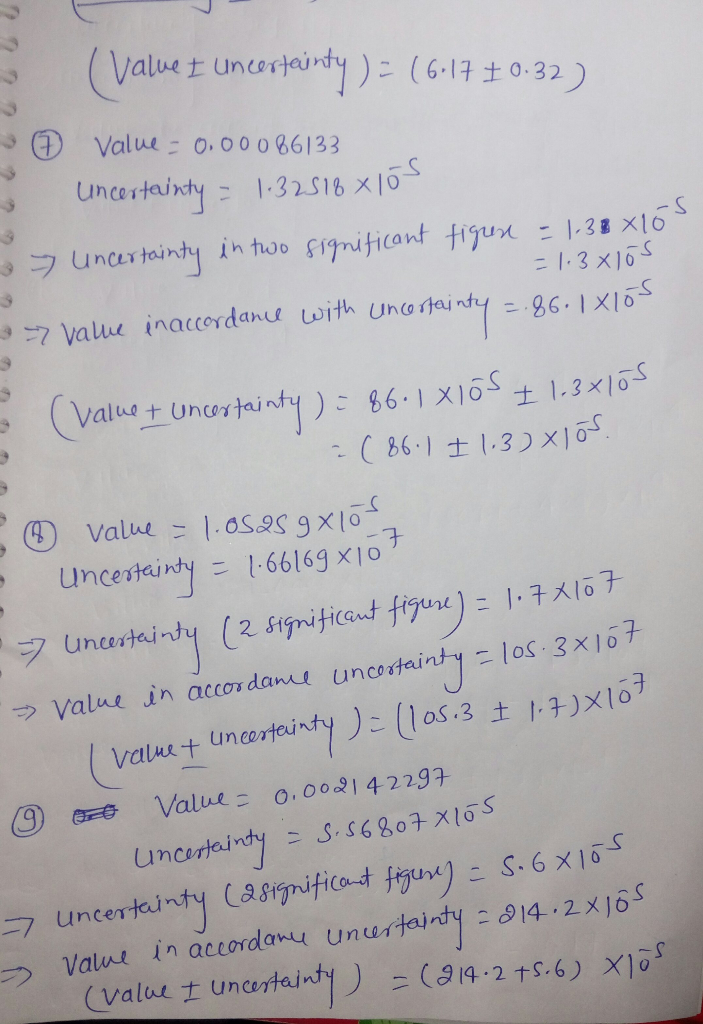 (Value ± uncertainty) = (6.17 ± 0.32)
⑦ Value = 0.00086133
Uncertainty = 1.32518 × 10⁻⁵
⇒ Uncertainty in two significant figure = 1.3 × 10⁻⁵
= 1.3 × 10⁻⁵
⇒ Value inaccordance with uncertainty = 86.1 × 10⁻⁵
(Value ± Uncertainty) = 86.1 × 10⁻⁵ ± 1.3 × 10⁻⁵
= (86.1 ± 1.3) × 10⁻⁵.
⑧ Value = 1.05259 × 10⁻⁵
Uncertainty = 1.66169 × 10⁻⁷
⇒ Uncertainty (2 significant figure) = 1.7 × 10⁻⁷
⇒ Value in accordance uncertainty = 105.3 × 10⁻⁷
(Value ± Uncertainty) = (105.3 ± 1.7) × 10⁻⁷
⑨ Value = 0.002142297
Uncertainty = 5.56807 × 10⁻⁵
⇒ Uncertainty (2 significant figure) = 5.6 × 10⁻⁵
⇒ Value in accordance uncertainty = 214.2 × 10⁻⁵
(Value ± Uncertainty) = (214.2 + 5.6) × 10⁻⁵